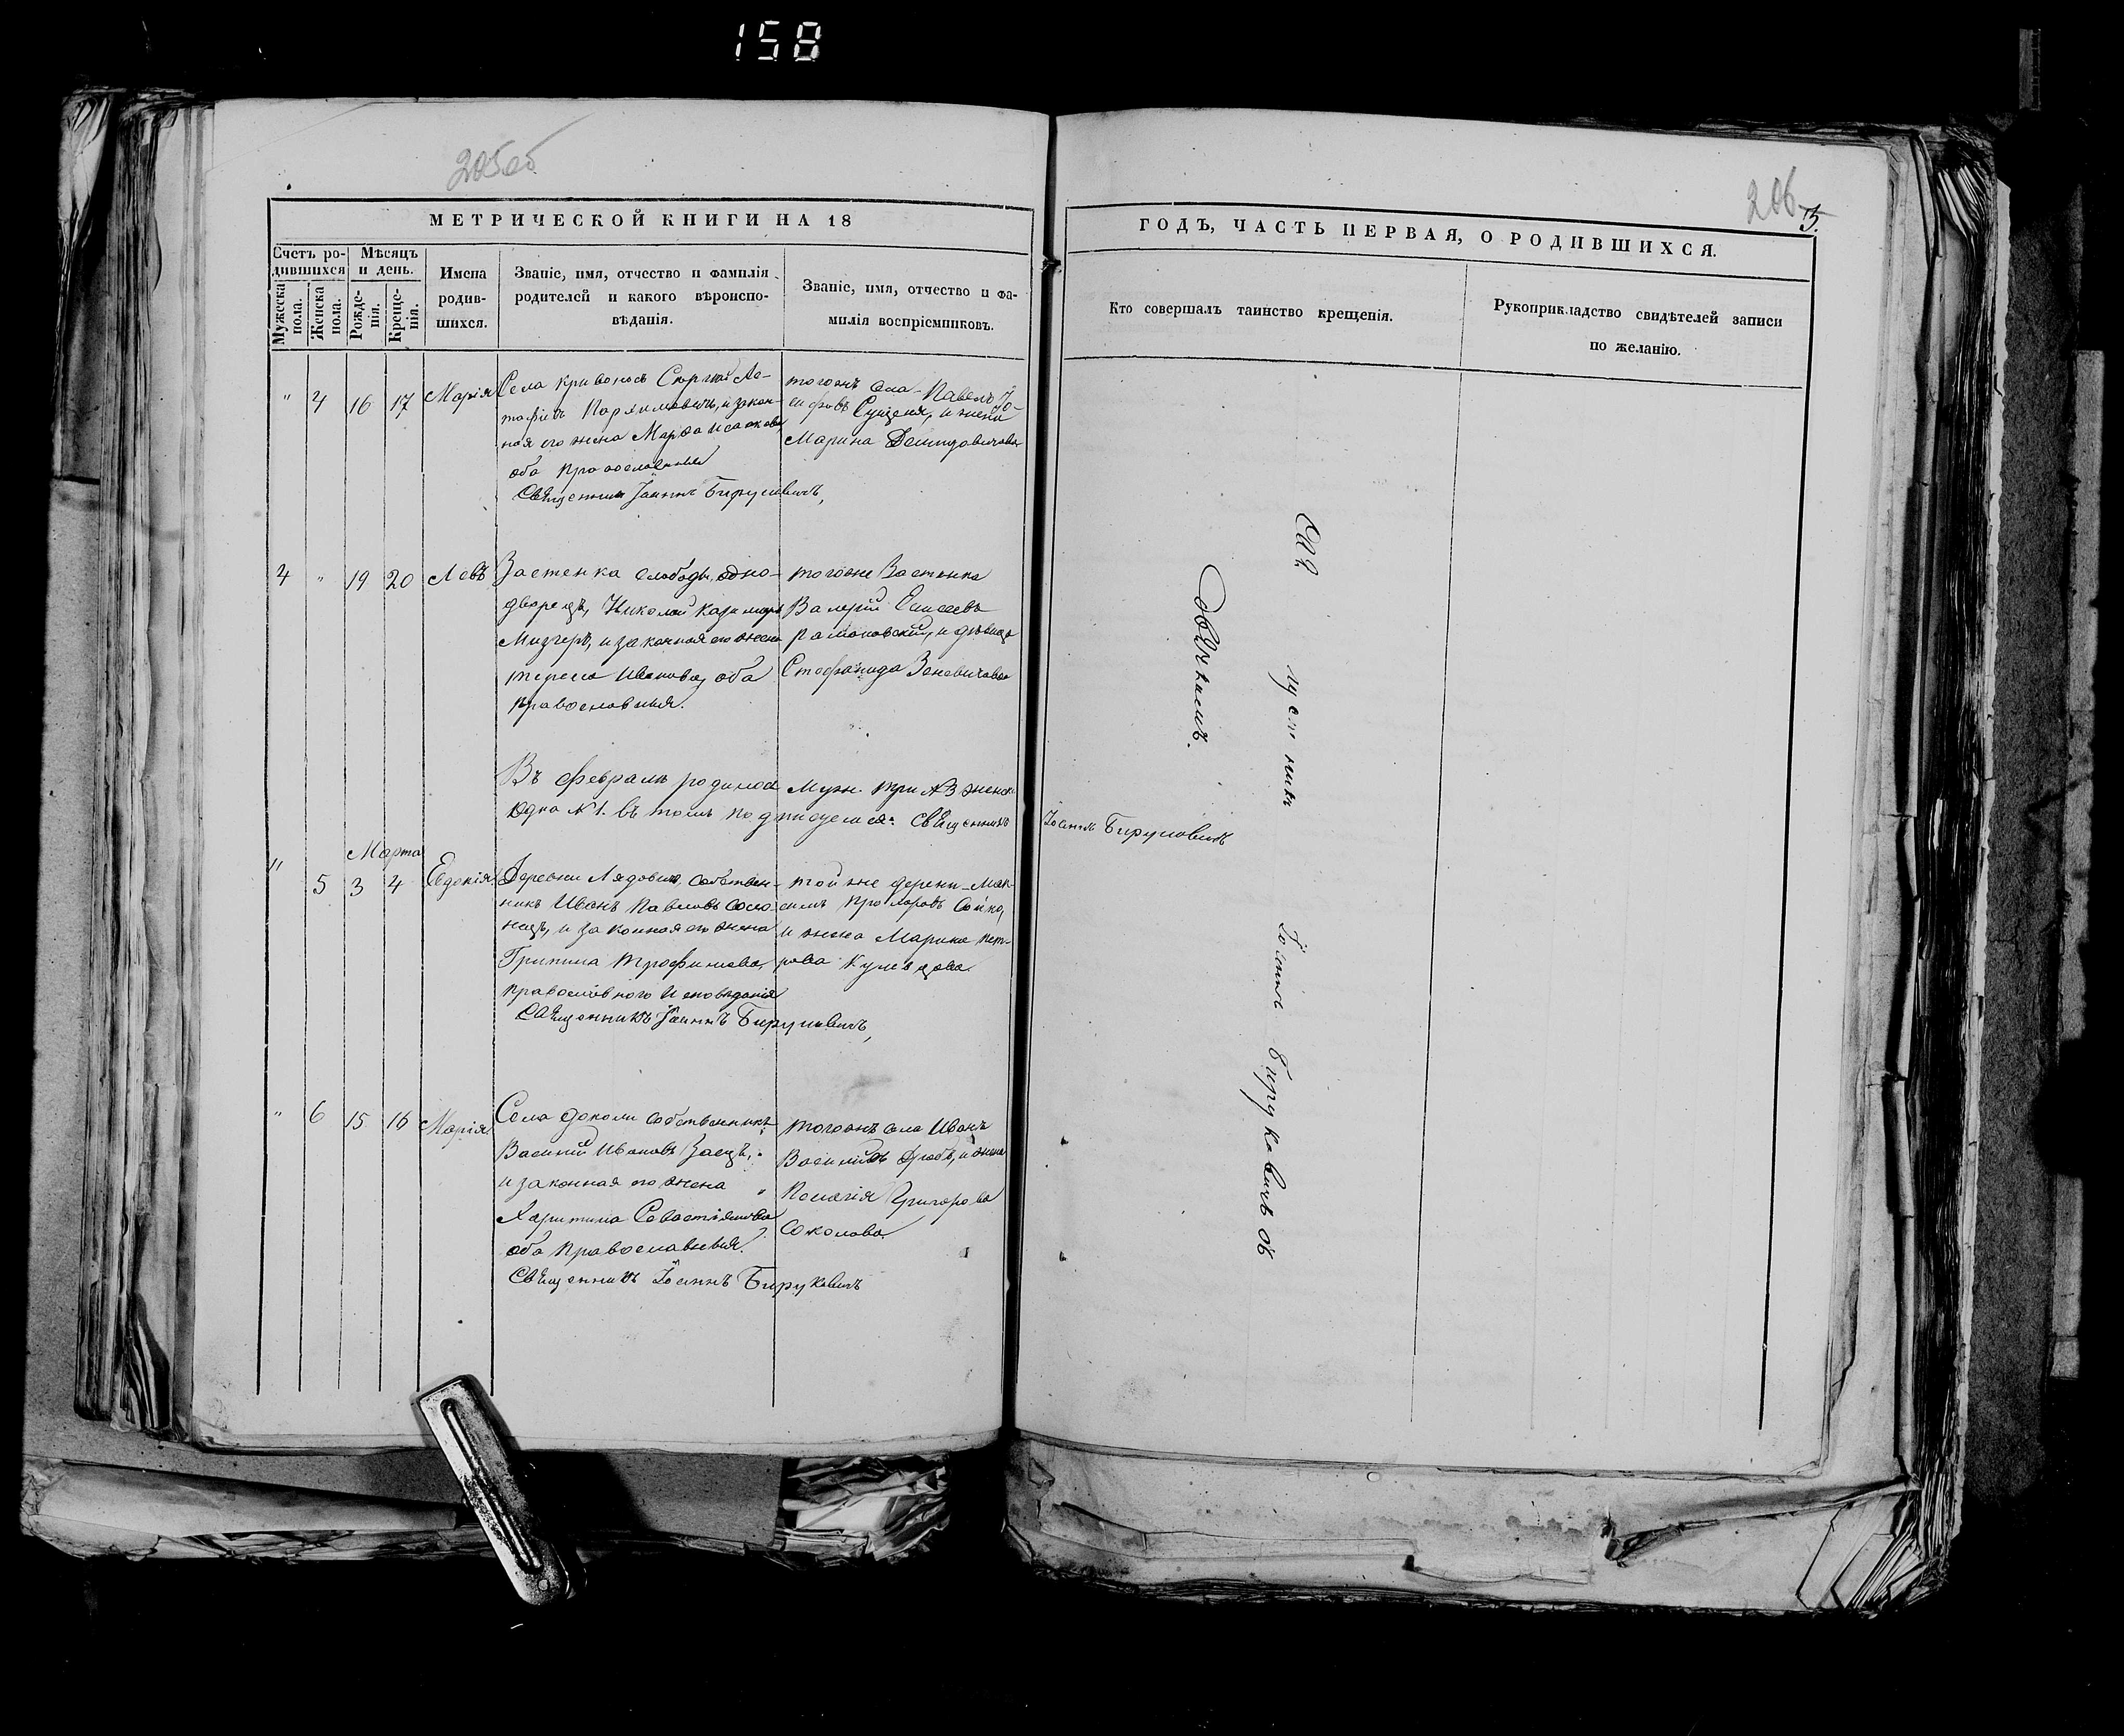 158
205об
МЕТРИЧЕСКОЙ КНИГИ НА 18
Счетъ родившихся
Мужеска пола.
Женска пола.
Мѣсяцъ и день.
Рожденія.
Крещенія.
Имена родившихся.
Званіе, имя, отчество и фамилія
родителей и какого вѣроиспо-
вѣданія.
Званіе, имя, отчество и фа-
милія воспріемниковъ.
" 4 16 17 Марія
Села Кривоносъ
законная его жена Марѳа Исаакова
оба православныя
Священникъ Іоаннъ Бируковичъ,
тогожъ села Павелъ Іо-
сифовъ Сущеня, и жена
Марина Демидовичова
4 " 19 20 Левъ
Застенка Слободы, одно-
дворецъ, Николай Казимировъ
Мизгеръ, и законная его жена
тереса Иванова, оба
православныя.
тогоже Застенка
Валерій Елисеевъ
Рамановскій, и дѣвица
Стефанида Зеневичова
Въ февралѣ родилось Муж. три № 3 женск.
Одна № 1. въ томъ подписуемся: Священникъ
Марта
" 5 3 4 Евдокія
Деревни Лядовичъ, собствен-
никъ Иванъ Павловъ
и законная его жена
Грипина Трофимова,
православного Исповѣданія
Священникъ Іоаннъ Бируковичъ,
той же деревни Мак-
симъ Сойко,
и жена Марина Пет-
рова
" 6 15 16 Марія
Села Доколи собственникъ
Василій Ивановъ Заецъ,
и законная его жена
Харитина Севастіянова
оба Православныя.
Священникъ Іоаннъ Бируковичъ
тогожъ села Иванъ
Васильевъ и жена
Пелагія Григорова
Соколова
206
5.
ГОДЪ, ЧАСТЬ ПЕРВАЯ, О РОДИВШИХСЯ.
Кто совершалъ таинство крещенія.
Рукоприкладство свидѣтелей записи
по желанію.
Іоаннъ Бируковичъ
Іоаннъ Бируковичъ съ